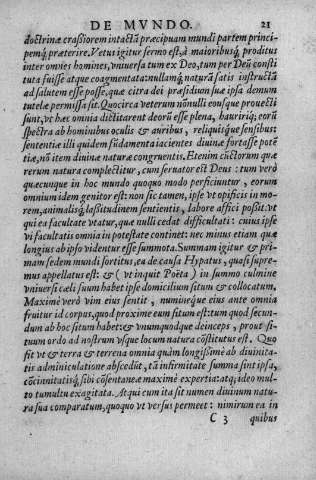 DE MVNDO. 21
doctrinæ craßiorem intactā præcipuam mundi partem princi-
pemq́; præterire. Vetus igitur sermo est, à maioribusq́; proditus
inter omnies homines, vniuersa tum ex Deo, tum per Deū consti
tuta fuisse atque coagmentata: nullamq́; naturā satis instructā
ad salutem esse posse, quæ citra dei præsidium suæ ipsa demum
tutelæ permissa sit. Quocirca veterum nōnulli eousque prouecti
sunt, vt hæc omnia dictitarent deorū esse plena, hauririq́; eorū
spectra ab hominibus oculis & auribus, reliquisq́ue sensibus:
sententiæ illi quidem fūdamenta iacientes diuinæ fortasse potē
tiæ, nō item diuinæ naturæ congruentis. Etenim cūctorum quæ
rerum natura complectitur, cum seruator est Deus: tum verò
quæcunque in hoc mundo quoquo modo perficiuntur, eorum
omnium idem genitor est: non sic tamen, ipse vt opificis in mo-
rem, animalisq́; laßitudinem sentientis, labore affici poßit. vt
qui ea facultate vtatur, quæ nulli cedat difficultati: cuius ipse
vi facultatis omnia in potestate continet: nec minus etiam quæ
longius ab ipso videntur esse summota. Summam igitur & pri-
mam sedem mundi sortitus, ea de causa Hypatus, quasi supre-
mus appellatus est: & (vt inquit Poëta) in summo culmine
vniuersi cæli suum habet ipse domicilium situm & collocatum.
Maximè verò vim eius sentit, numinéque eius ante omnia
fruitur id corpus, quod proximè eum situm est: tum quod secun-
dum ab hoc situm habet: & vnumquodque deinceps, prout si-
tuum ordo ad nostrum vsque locum natura cōstitutus est. Quo
fit vt & terra & terrena omnia quàm longißimè ab diuinita-
tis adminiculatione abscedūt, tā infirmitate summa sint ipsa,
cōcinnitatisq́; sibi cōsentaneæ maximè expertia: atq́; ideo mul-
to tumultu exagitata. At qui cum ita sit numen diuinum natu-
ra sua comparatum, quoquo vt versus permeet: nimirum ea in
C 3 quibus